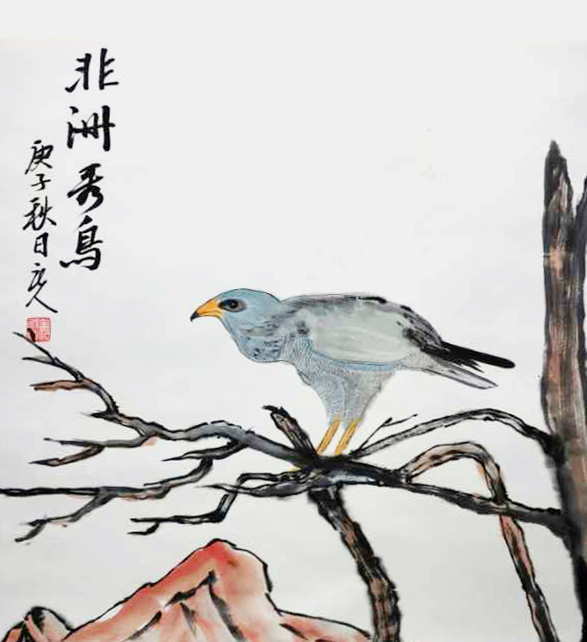 非洲秀鳥
庚子秋日